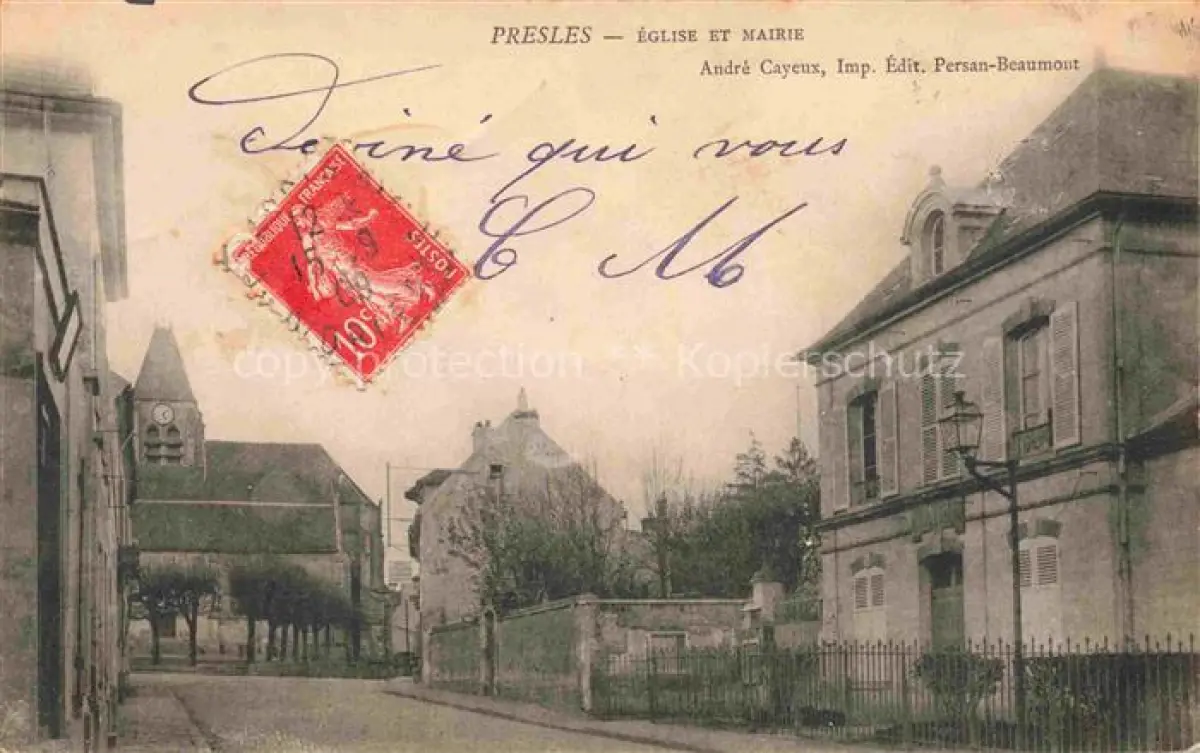 PRESLES — ÉGLISE ET MAIRIE
André Cayeux, Imp. Édit. Persan-Beaumont
Deviné qui vous
C M
RÉPUBLIQUE FRANÇAISE
POSTES
10c
12
15 9
08
copyright protection * Kopierschutz